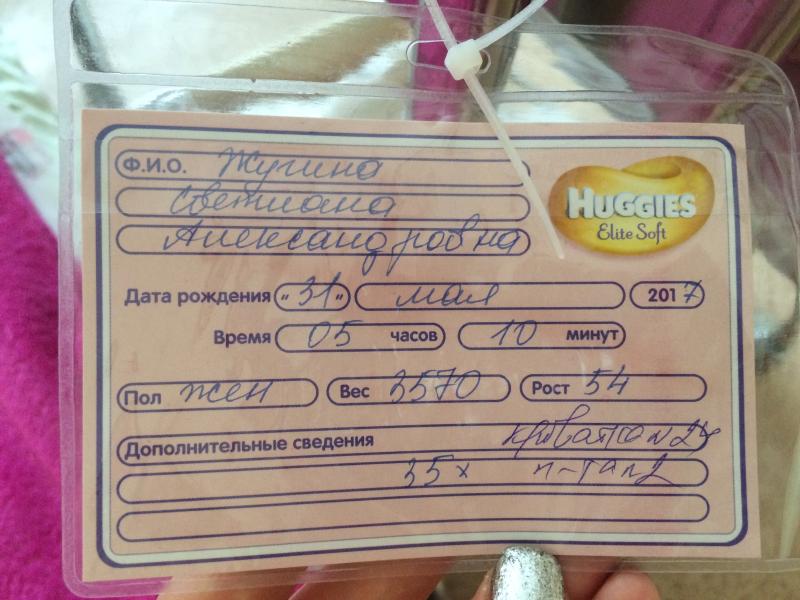 Ф.И.О. Жугина
Светлана
Александровна
HUGGIES
Elite Soft
Дата рождения „31" мая 2017
Время 05 часов 10 минут
Пол жен Вес 3570 Рост 54
Дополнительные сведения
35х